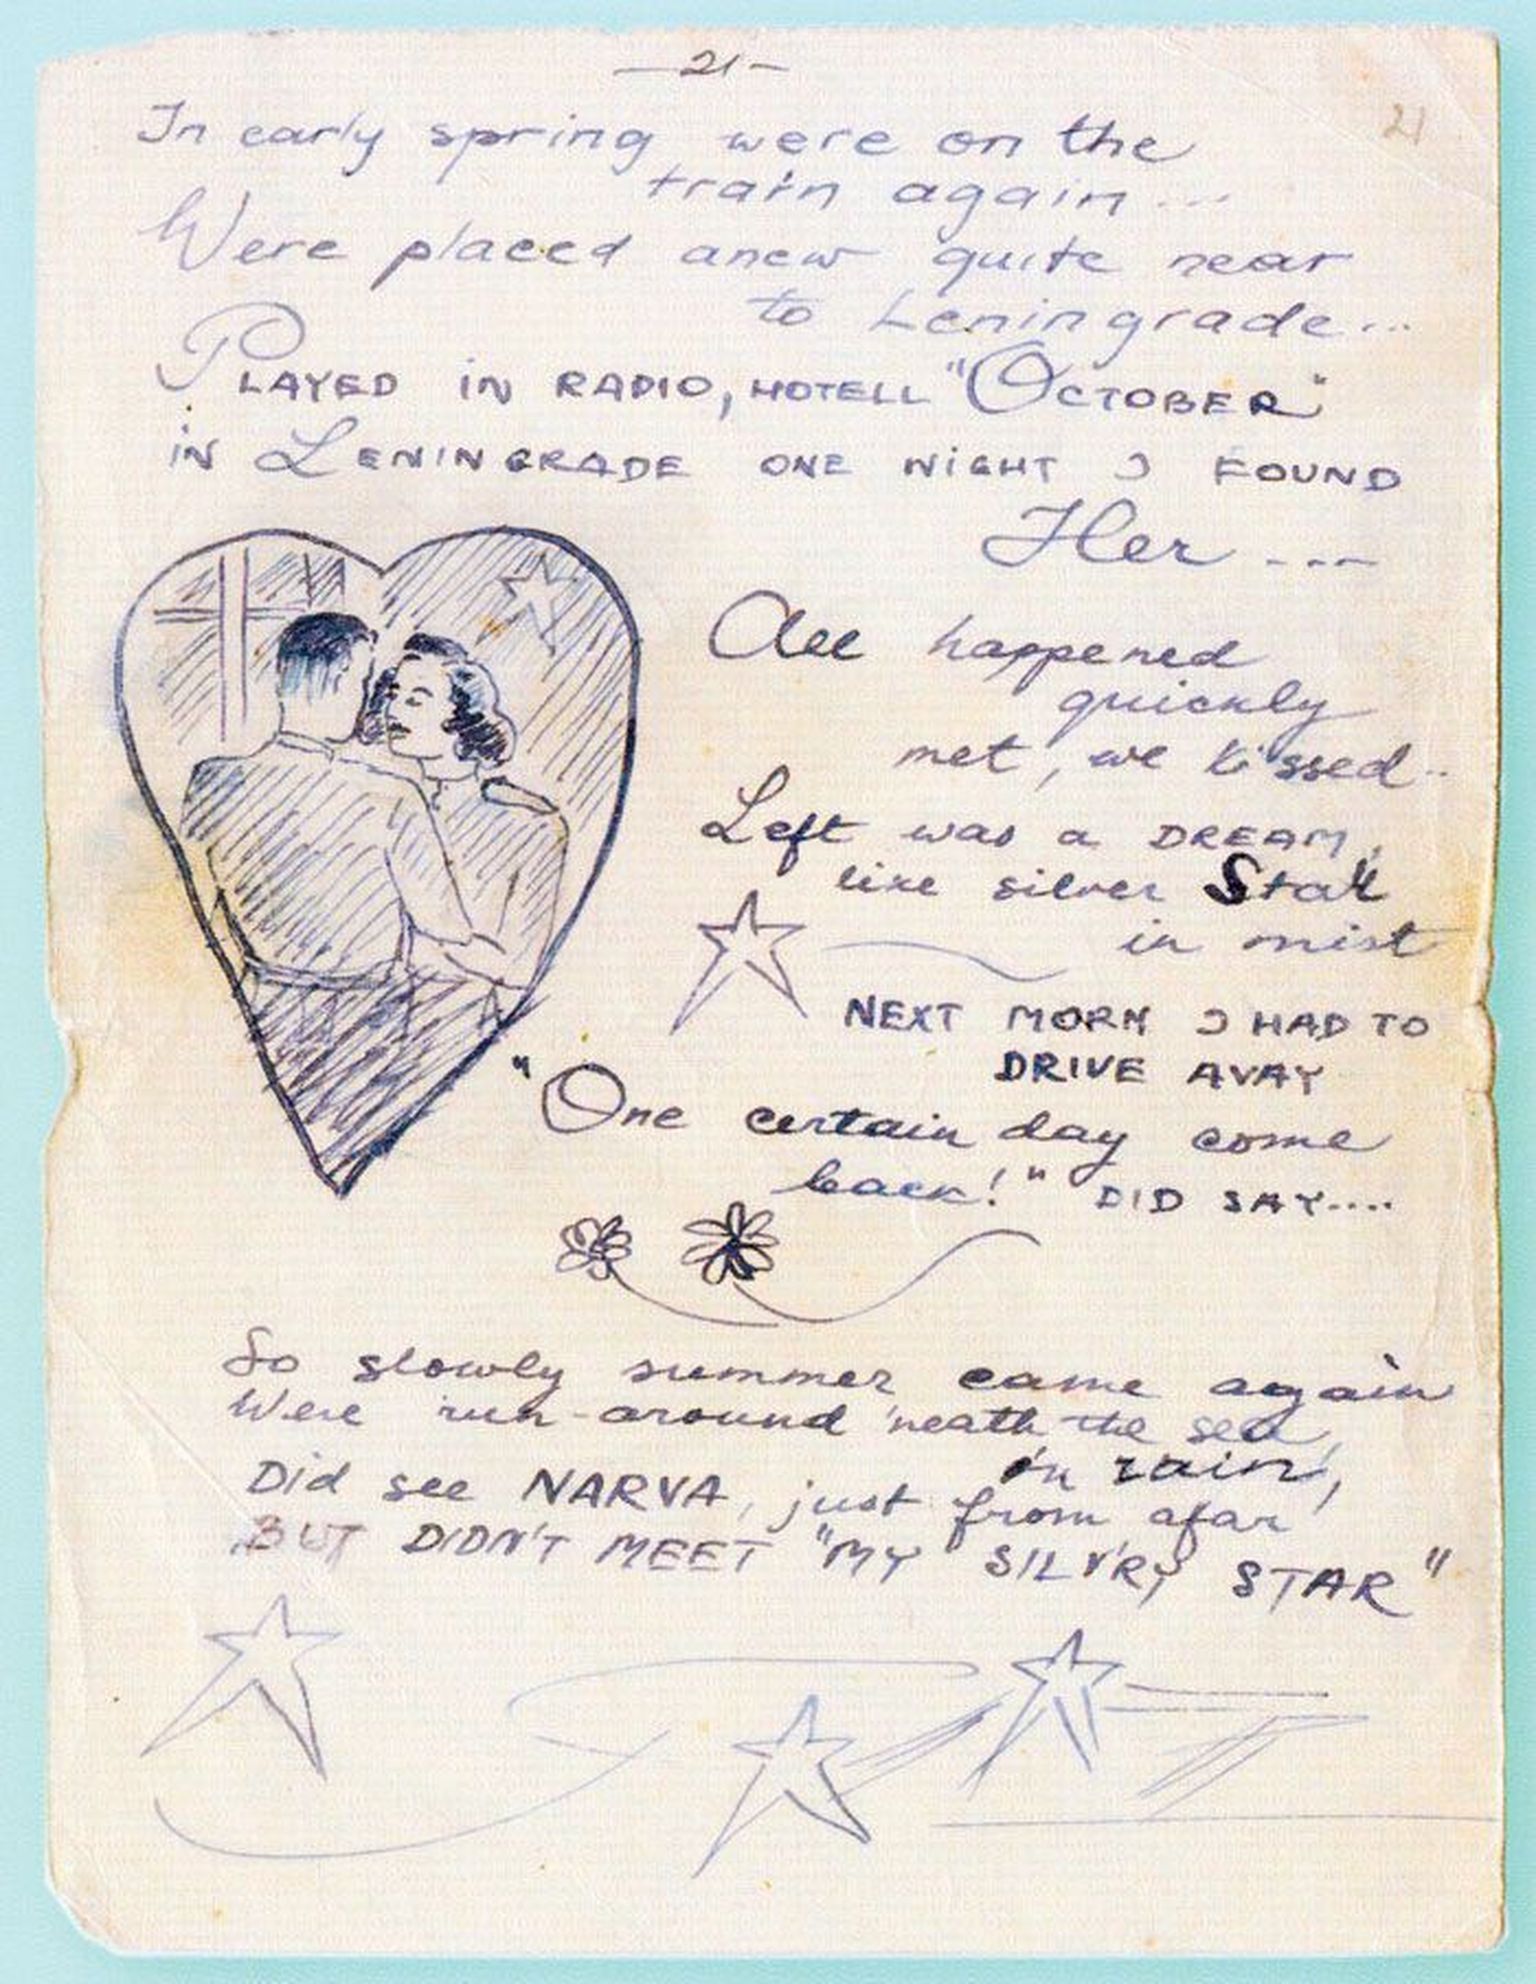 —21—
21
In early spring were on the
train again...
Were placed anew quite near
to Leningrade...
PLAYED IN RADIO, HOTELL "OCTOBER"
IN LENINGRADE ONE NIGHT I FOUND
Her ---
All happened
quickly
met, we kissed..
Left was a DREAM,
like silver Star
in mist
NEXT MORN I HAD TO
DRIVE AVAY
"One certain day come
back!" DID SAY....
So slowly summer came again
Were run around 'neath the sea,
in rain,
Did see NARVA, just from afar
BUT DIDN'T MEET "MY SILV'RY STAR"